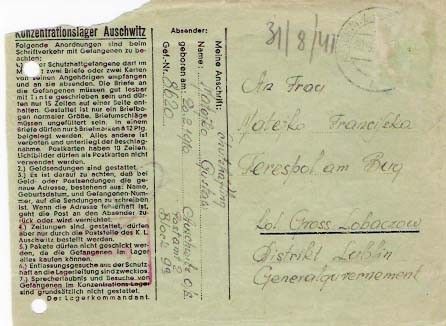 Konzentrationslager Auschwitz
Folgende Anordnungen sind beim
Schriftverkehr mit Gefangenen zu be-
achten:
1.) Jeder Schutzhaftgefangene darf im
Monat zwei Briefe oder zwei Karten
von seinen Angehörigen empfangen
und an sie absenden. Die Briefe an
die Gefangenen müssen gut lesbar
mit Tinte geschrieben sein und dürfen
nur 15 Zeilen auf einer Seite ent-
halten. Gestattet ist nur ein Briefbo-
gen normaler Größe. Briefumschläge
müssen ungefüttert sein. In einem
Briefe dürfen nur 5 Briefmarken à 12 Pfg.
beigelegt werden. Alles andere ist
verboten und unterliegt der Beschlag-
nahme. Postkarten haben 10 Zeilen.
Lichtbilder dürfen als Postkarten nicht
verwendet werden.
2.) Geldsendungen sind gestattet.
3.) Es ist darauf zu achten, daß bei
Geld- oder Postsendungen die ge-
naue Adresse, bestehend aus: Name,
Geburtsdatum, und Gefangenen-Num-
mer, auf die Sendungen zu schreiben
ist. Wenn die Adresse fehlerhaft ist,
geht die Post an den Absender zu-
rück oder wird vernichtet.
4.) Zeitungen sind gestattet, dürfen
aber nur durch die Poststelle des K L.
Auschwitz bestellt werden.
5.) Pakete dürfen nicht geschickt wer-
den, da die Gefangenen im Lager
alles kaufen können.
6.) Entlassungsgesuche aus der Schutz-
haft an die Lagerleitung sind zwecklos.
7.) Sprecherlaubnis und Besuche von
Gefangenen im Konzentrations-Lager
sind grundsätzlich nicht gestattet.
Der Lagerkommandant.
Absender:
Meine Anschrift:
Name:
geboren am:
Gef.-Nr. 8620
Auschwitz O.S.
Postamt 2
Block 9a
31/8/41
An Frau
Mateiko Franciszka
Terespol am Bug
Kol. Gross Lobaczow
Distrikt Lublin
Generalgouvernement